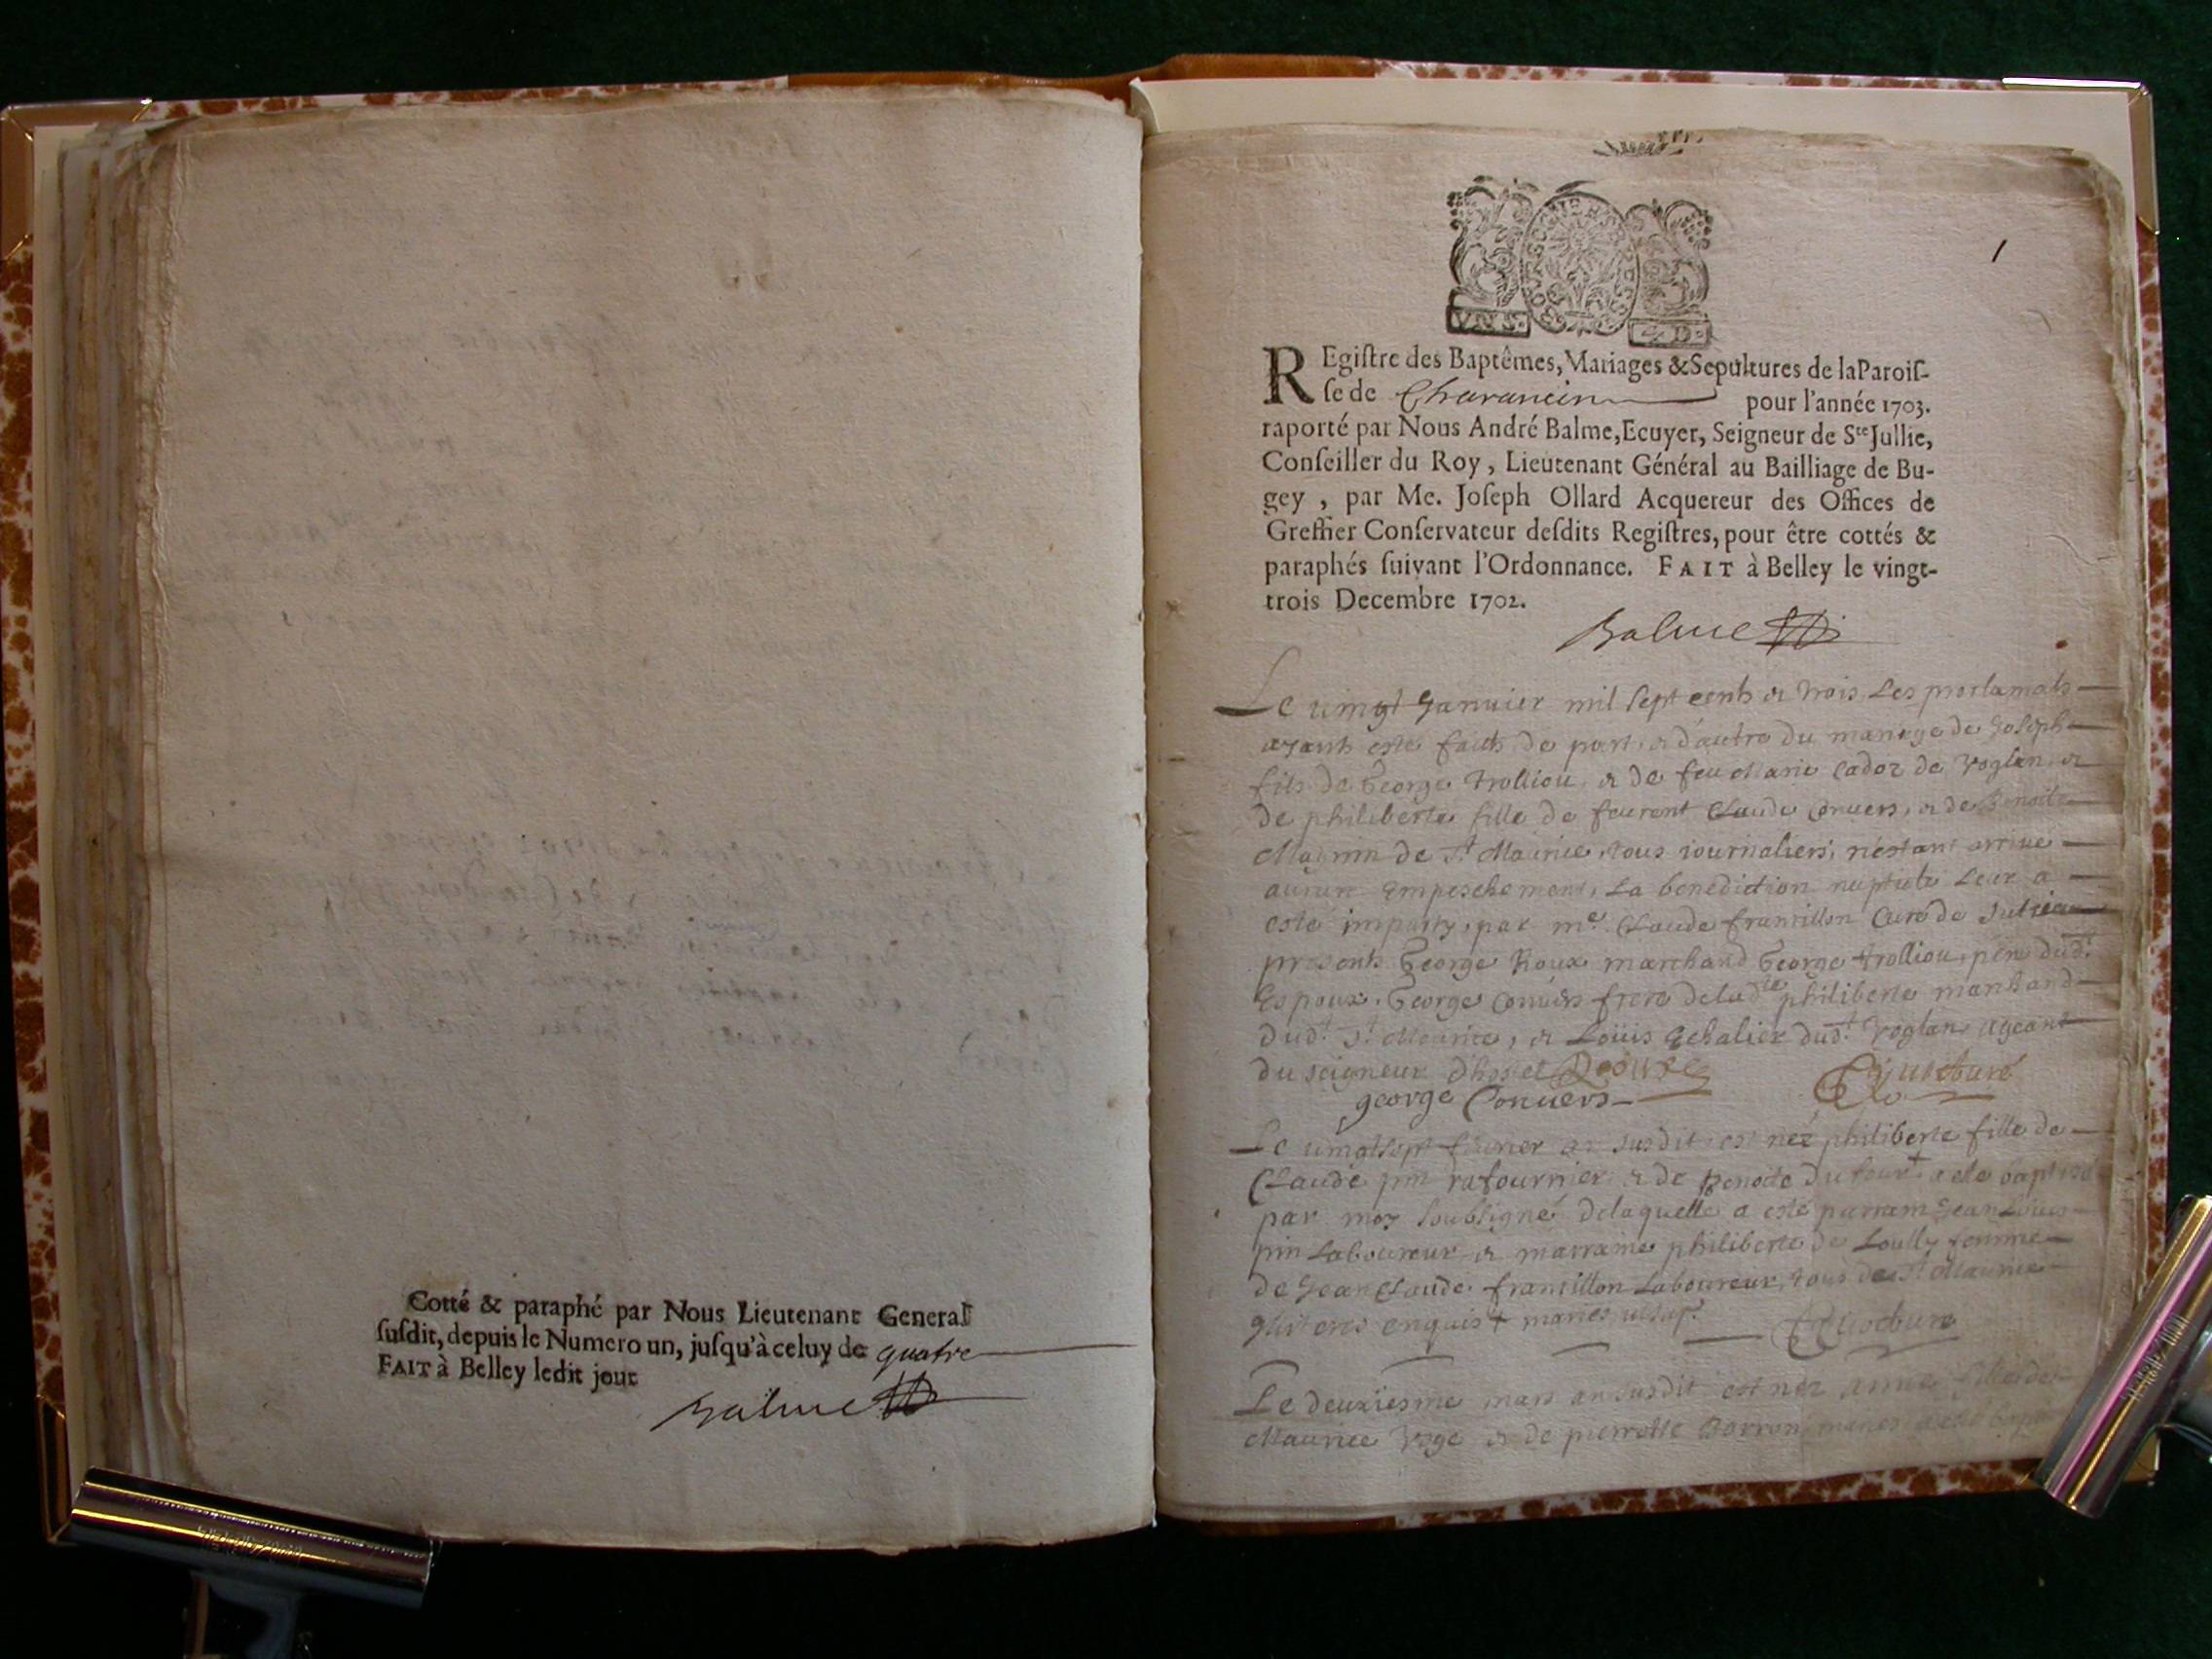 Cotté & paraphé par Nous Lieutenant General
susdit, depuis le Numero un, jusqu'à celuy de quatre
FAIT à Belley ledit jour
Balme
1
REgistre des Baptêmes, Mariages & Sepultures de la Parois-
se de Charancin pour l'année 1703.
raporté par Nous André Balme, Ecuyer, Seigneur de Ste Jullie,
Conseiller du Roy, Lieutenant Général au Bailliage de Bu-
gey, par Me. Joseph Ollard Acquereur des Offices de
Greffier Conservateur desdits Registres, pour être cottés &
paraphés suivant l'Ordonnance. FAIT à Belley le vingt-
trois Decembre 1702.
Balme
Le vingt Janvier mil sept cents & trois Les proclamats
ayants esté faits de part, & d'autre du mariage de Joseph
fils de George trolliou, & de feu Marie Cadoz de voglan, &
de philiberte fille de feu Claude Convers, & de Benoite
de St Maurice, tous journaliers, n'estant arrivé
aucun Empeschement, La benediction nuptiale Leur a
esté imparty, par me Claude francillon Curé de
presents George Roux marchand George trolliou, pere dudt
Espoux. George Convers frere delad te philiberte marchand
dudt St Maurice, & Loüis Echalier dudt voglan, ageant
du seigneur d'hostel
george Convers
Le vingtsept fevrier an susdit est neé philiberte fille de
Claude pin & de Benoite dufour & a esté baptisé
par moy soubsigné delaquelle a esté parrain Jean Louis
pin Laboureur & marraine philiberte de Loully femme
de Jean Claude francillon Laboureur, tous de St Maurice
illiteres enquis
Le deuxiesme mars an susdit est neé anne fille de
Maurice voge & de pierrotte mariés